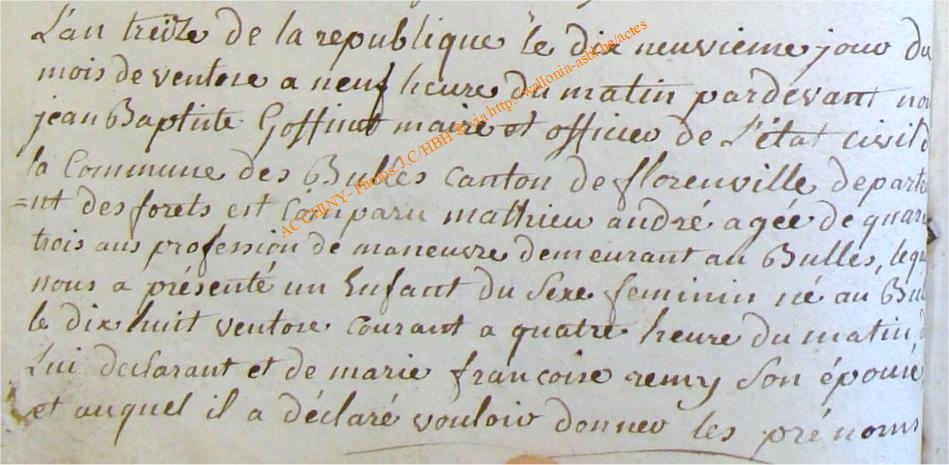 L'an treize de la republique le dix neuvieme jour du
mois de ventose a neuf heure du matin pardevant nou
jean Baptiste Goffinet maire et officier de L'état civil d
la Commune des Bulles canton de florenville departe
=nt des forets est Comparu mathieu andré agée de quara
trois ans profession de maneuvre demeurant au Bulles, lequ
nous a présenté un Enfant du Sexe feminin né au Bul
le dix huit ventose courant a quatre heure du matin, d
Lui declarant et de marie françoise remy Son épouse,
et auquel il a déclaré vouloir donner les prénoms
AC CHINY - Photos J.C/HBH via http://wallonia-asbl.be/actes